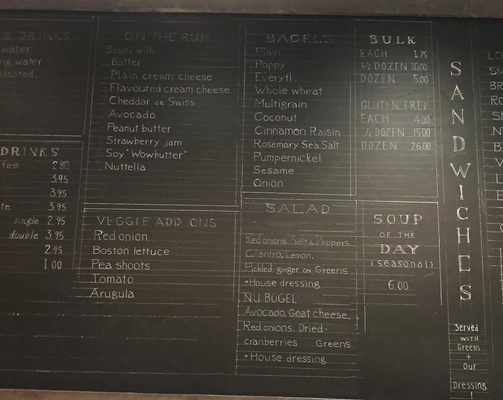 D DRINKS
water
ng water
ssorted
DRINKS
ffee 2.80
3.95
3.95
te 3.95
single 2.95
double 3.95
2.95
1.00
ON THE RUN
Bagel with
Butter
Plain cream cheese
Flavoured cream cheese
Cheddar or Swiss
Avocado
Peanut butter
Strawberry jam
Soy "Wowbutter"
Nuttella
VEGGIE ADD ONS
Red onion
Boston lettuce
Pea shoots
Tomato
Arugula
BAGELS
Plain
Poppy
Everyth
Whole wheat
Multigrain
Coconut
Cinnamon Raisin
Rosemary Sea Salt
Pumpernickel
Sesame
Onion
BULK
EACH 1.75
½ DOZEN 10.00
DOZEN
GLUTEN FREE
EACH 4.00
½ DOZEN 15.00
DOZEN 26.00
SALAD
Red onions, Salt & Peppers,
Cilantro, Lemon,
Pickled ginger on Greens
+House dressing
NU BÜGEL
Avocado, Goat cheese,
Red onions, Dried-
cranberries Greens
+House dressing
SOUP
OF THE
DAY
(seasonal)
6.00
SANDWICHES
Served
WITH
Greens
+
Our
Dressing